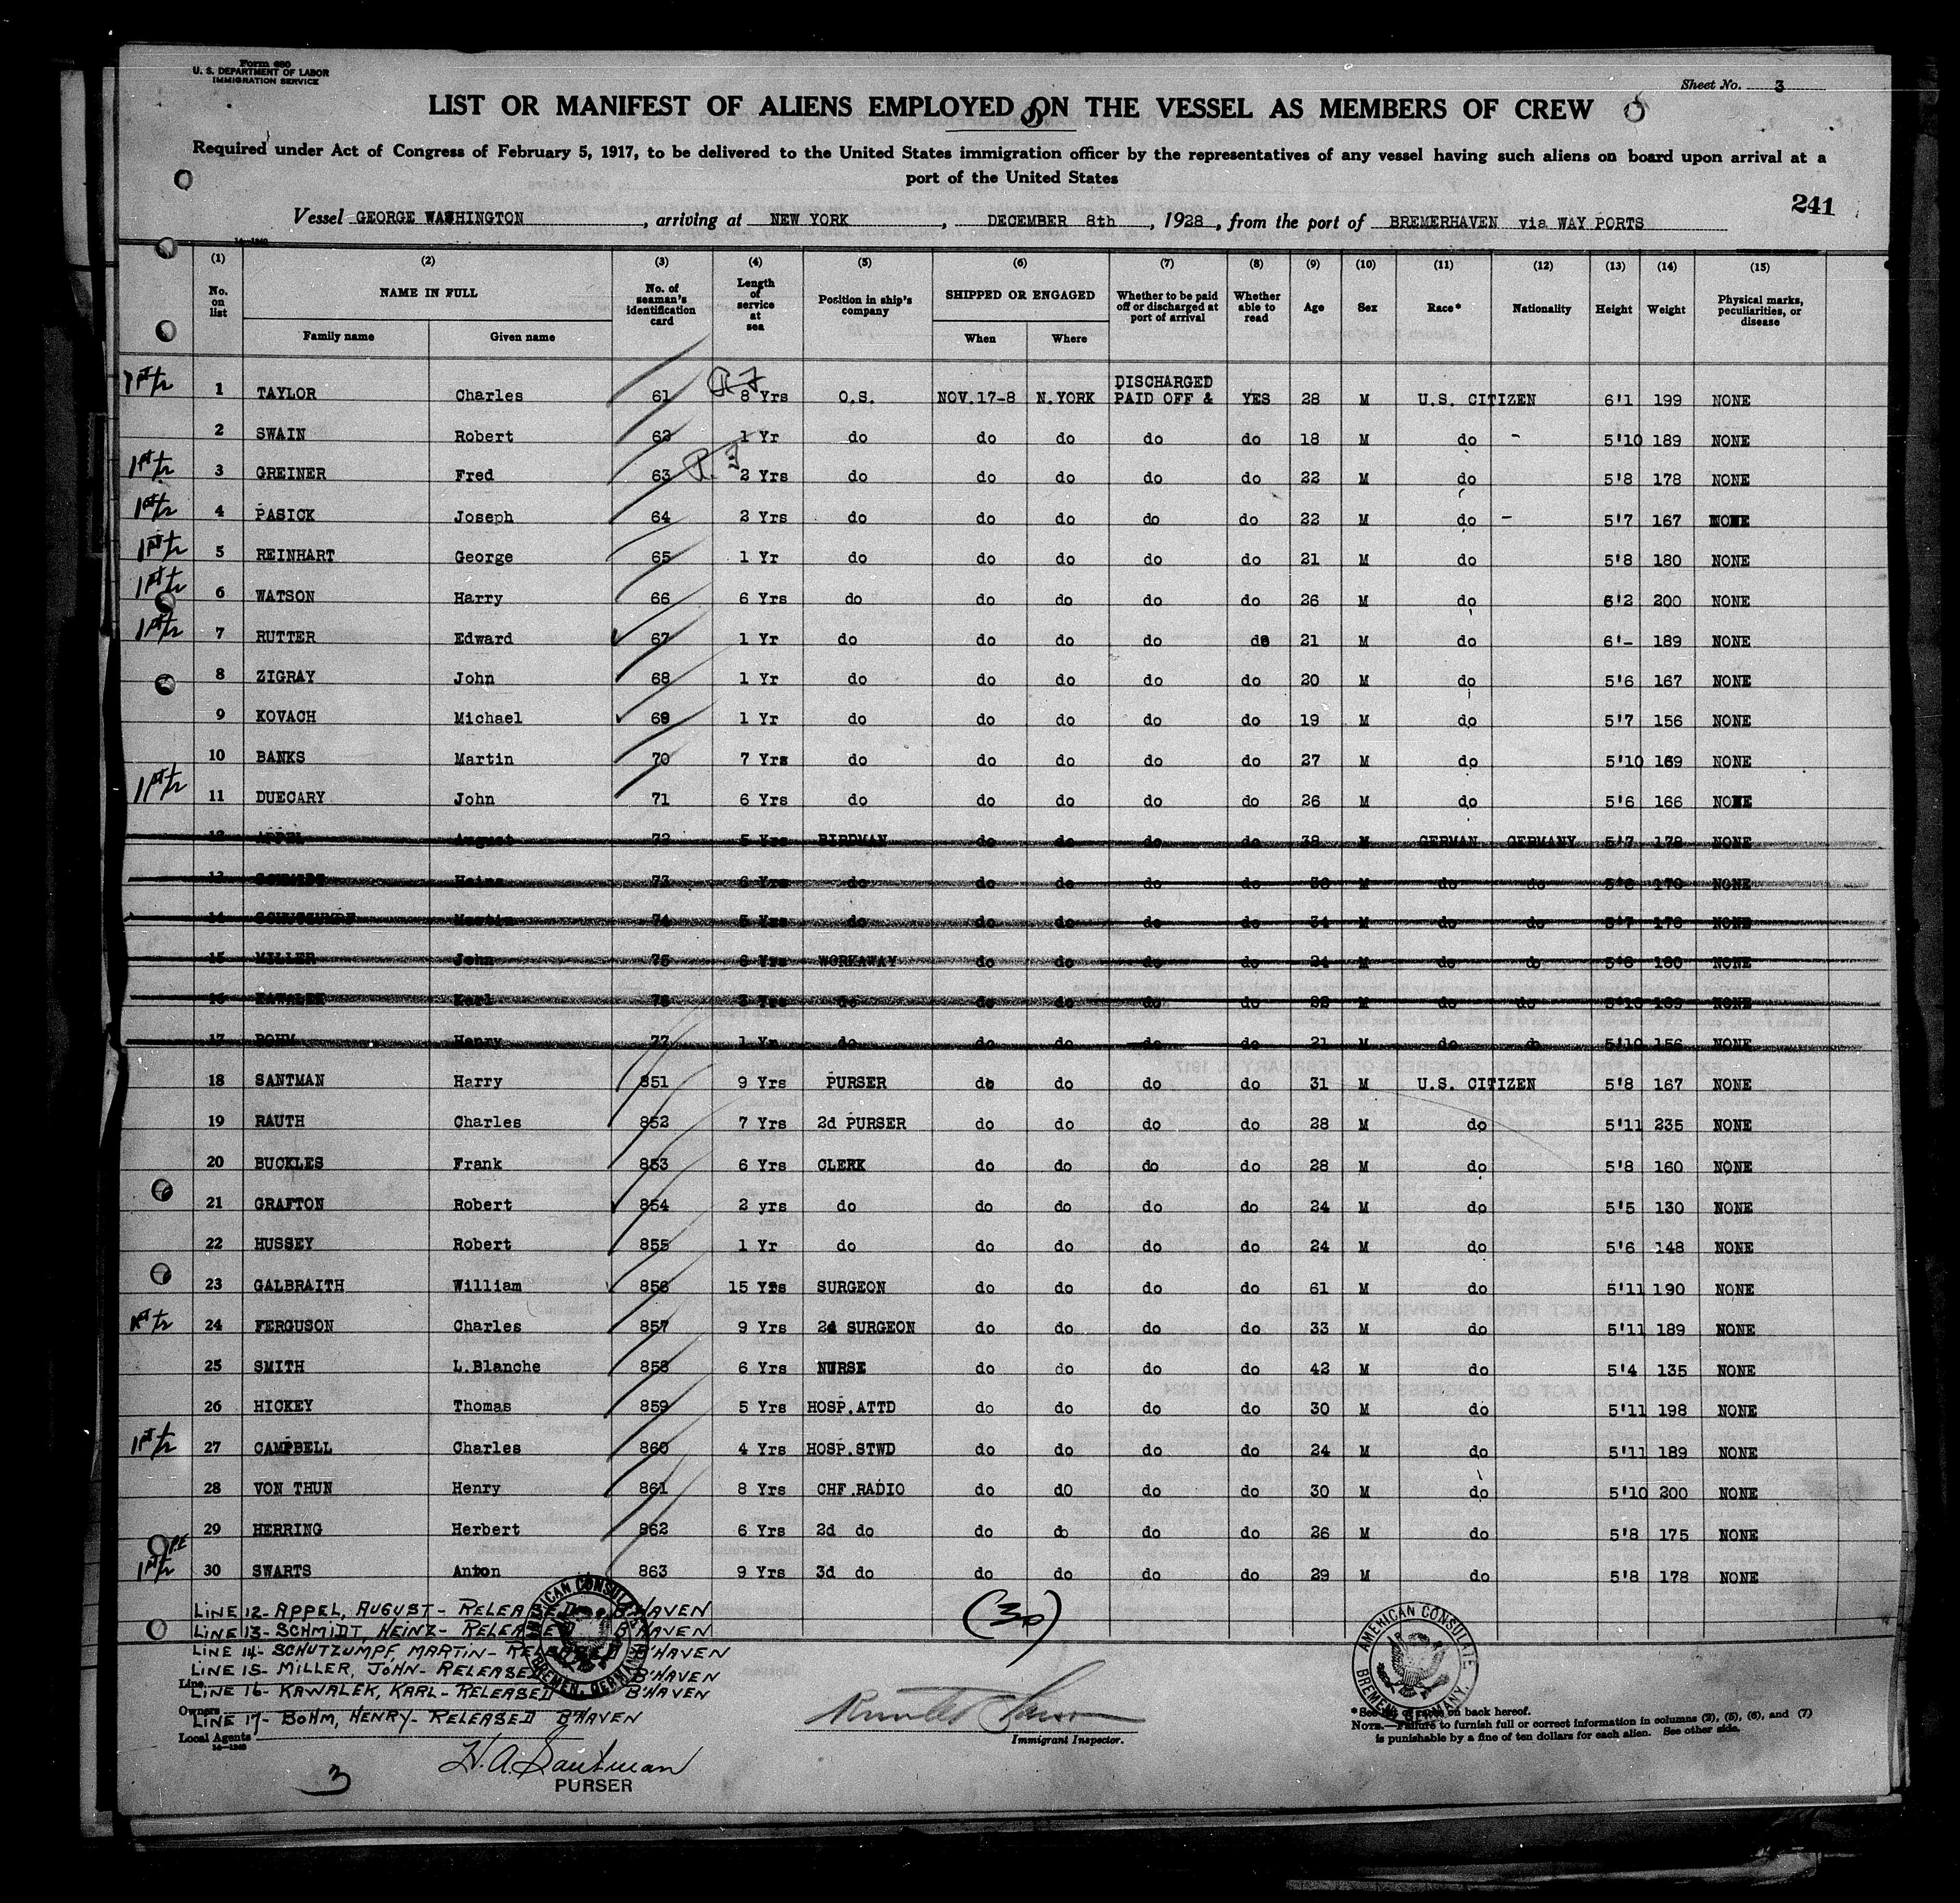 Form 680
U. S. DEPARTMENT OF LABOR
IMMIGRATION SERVICE
Sheet No. 3
LIST OR MANIFEST OF ALIENS EMPLOYED ON THE VESSEL AS MEMBERS OF CREW
Required under Act of Congress of February 5, 1917, to be delivered to the United States immigration officer by the representatives of any vessel having such aliens on board upon arrival at a
port of the United States
241
Vessel GEORGE WASHINGTON, arriving at NEW YORK, DECEMBER 8th, 1928, from the port of BREMERHAVEN via WAY PORTS
(1) (2) (3) (4) (5) (6) (7) (8) (9) (10) (11) (12) (13) (14) (15)
No. on list NAME IN FULL No. of seaman's identification card Length of service at sea Position in ship's company SHIPPED OR ENGAGED Whether to be paid off or discharged at port of arrival Whether able to read Age Sex Race* Nationality Height Weight Physical marks, peculiarities, or disease
Family name Given name When Where
DISCHARGED
1 TAYLOR Charles 61 8 Yrs O.S. NOV.17-8 N.YORK PAID OFF & YES 28 M U.S. CITIZEN 6'1 199 NONE
2 SWAIN Robert 62 1 Yr do do do do do 18 M do - 5'10 189 NONE
3 GREINER Fred 63 2 Yrs do do do do do 22 M do 5'8 178 NONE
4 PASICK Joseph 64 2 Yrs do do do do do 22 M do - 5'7 167 NONE
5 REINHART George 65 1 Yr do do do do do 21 M do 5'8 180 NONE
6 WATSON Harry 66 6 Yrs do do do do do 26 M do 6'2 200 NONE
7 RUTTER Edward 67 1 Yr do do do do do 21 M do 6'- 189 NONE
8 ZIGRAY John 68 1 Yr do do do do do 20 M do 5'6 167 NONE
9 KOVACH Michael 69 1 Yr do do do do do 19 M do 5'7 156 NONE
10 BANKS Martin 70 7 Yrs do do do do do 27 M do 5'10 169 NONE
11 DUECARY John 71 6 Yrs do do do do do 26 M do 5'6 166 NONE
12 APPEL August 72 5 Yrs BIRDMAN do do do do 38 M GERMAN GERMANY 5'7 178 NONE
13 SCHMIDT Heinz 73 6 Yrs do do do do do M do do NONE
14 SCHUTZUMPF Martin 74 5 Yrs do do do do do 34 M do do 5'7 178 NONE
15 MILLER John 75 6 Yrs WORKAWAY do do do do 24 M do do NONE
16 KAWALEK Karl 76 3 Yrs do do do do do M do do 5'10 NONE
17 BOHM Henry 77 1 Yr do do do do do 21 M do do 5'10 156 NONE
18 SANTMAN Harry 851 9 Yrs PURSER do do do do 31 M U.S. CITIZEN 5'8 167 NONE
19 RAUTH Charles 852 7 Yrs 2d PURSER do do do do 28 M do 5'11 235 NONE
20 BUCKLES Frank 853 6 Yrs CLERK do do do do 28 M do 5'8 160 NONE
21 GRAFTON Robert 854 2 yrs do do do do do 24 M do 5'5 130 NONE
22 HUSSEY Robert 855 1 Yr do do do do do 24 M do 5'6 148 NONE
23 GALBRAITH William 856 15 Yrs SURGEON do do do do 61 M do 5'11 190 NONE
24 FERGUSON Charles 857 9 Yrs 2d SURGEON do do do do 33 M do 5'11 189 NONE
25 SMITH L.Blanche 858 6 Yrs NURSE do do do do 42 M do 5'4 135 NONE
26 HICKEY Thomas 859 5 Yrs HOSP.ATTD do do do do 30 M do 5'11 198 NONE
27 CAMPBELL Charles 860 4 Yrs HOSP.STWD do do do do 24 M do 5'11 189 NONE
28 VON THUN Henry 861 8 Yrs CHF.RADIO do dO do do 30 M do 5'10 200 NONE
29 HERRING Herbert 862 6 Yrs 2d do do do do do 26 M do 5'8 175 NONE
30 SWARTS Anton 863 9 Yrs 3d do do do do do 29 M do 5'8 178 NONE
(30)
LINE 12- APPEL, AUGUST- RELEASED B'HAVEN
LINE 13- SCHMIDT, HEINZ- RELEASED B'HAVEN
LINE 14- SCHUTZUMPF, MARTIN- RELEASED B'HAVEN
LINE 15- MILLER, JOHN- RELEASED B'HAVEN
Line
LINE 16- KAWALEK, KARL- RELEASED B'HAVEN
Owners
LINE 17- BOHM, HENRY- RELEASED B'HAVEN
Local Agents
14-1240
AMERICAN CONSULATE
BREMEN, GERMANY.
AMERICAN CONSULATE
BREMEN, GERMANY.
Immigrant Inspector.
*See list of races on back hereof.
NOTE.—Failure to furnish full or correct information in columns (2), (5), (6), and (7)
is punishable by a fine of ten dollars for each alien. See other side.
3
H.A. Santman
PURSER